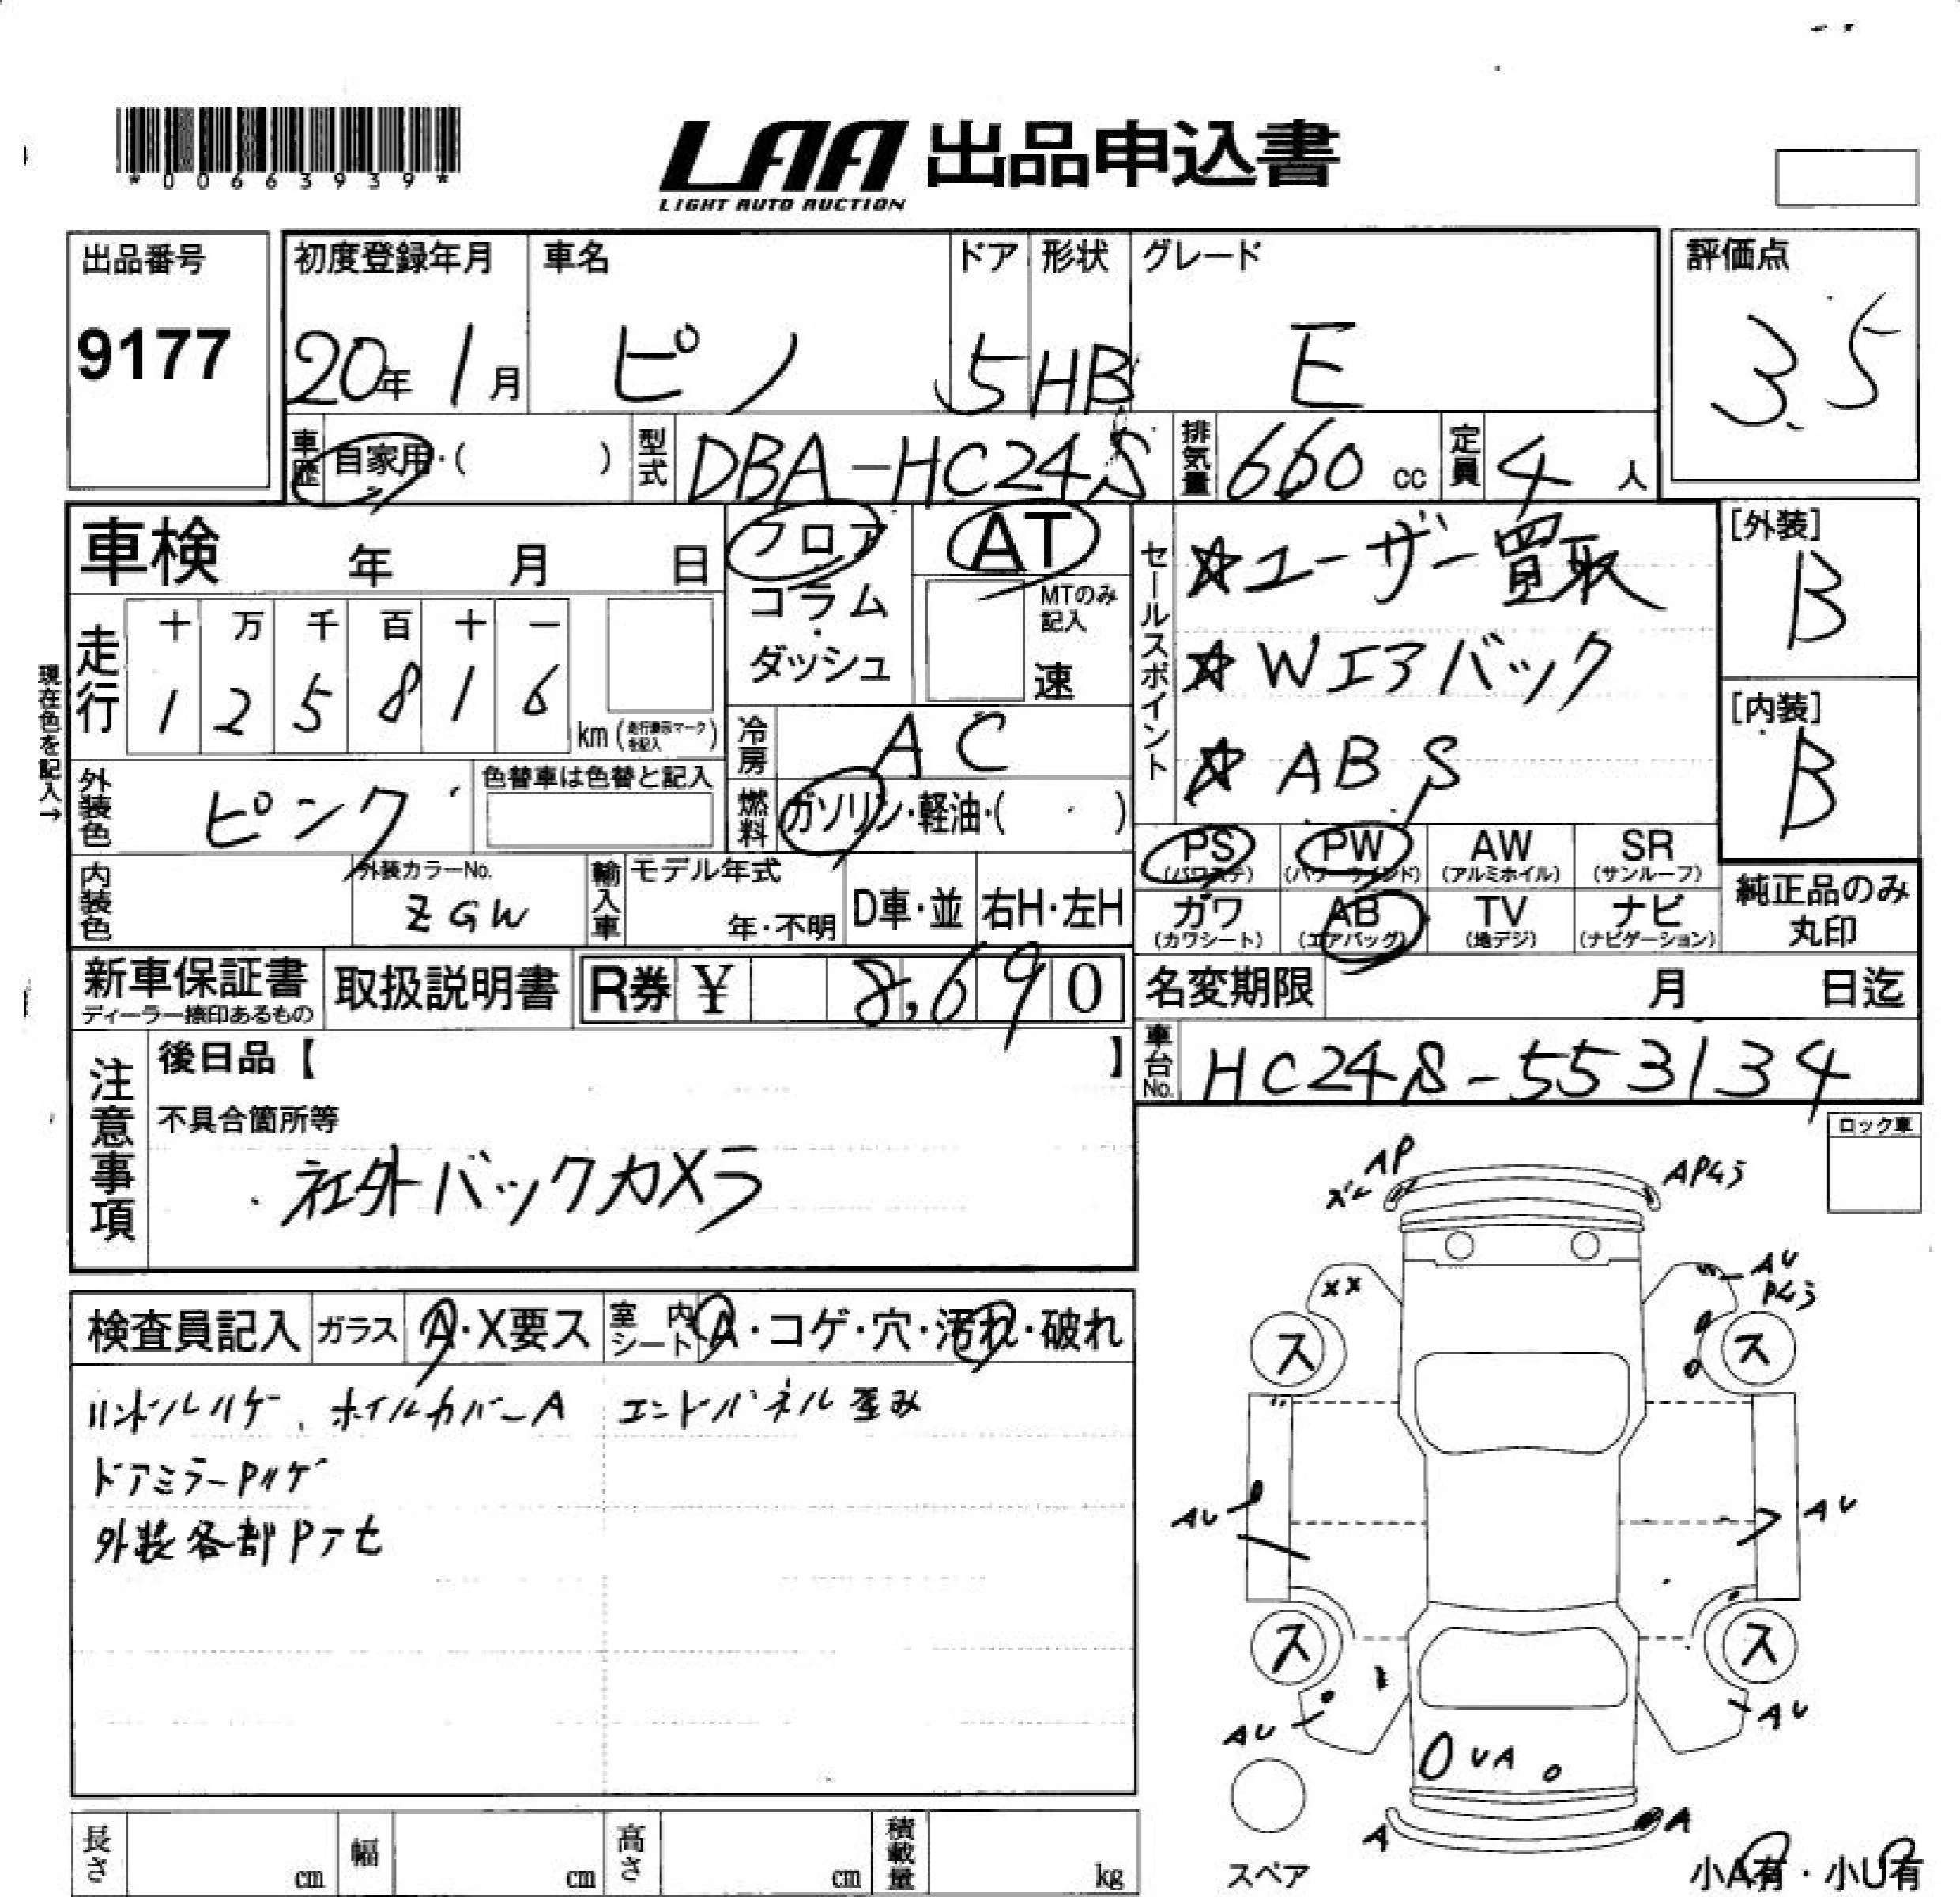 *00663939*
LAA 出品申込書
LIGHT AUTO AUCTION
出品番号 初度登録年月 車名 ドア 形状 グレード 評価点
9177 20年 1月 ピノ 5 HB E 3.5
車歴 自家用・( ) 型式 DBA-HC24S 排気量 660 cc 定員 4 人
車検 年 月 日 フロア AT セールスポイント ☆ユーザー買取 [外装]
B
コラム・ MTのみ記入
ダッシュ 速
現在色を記入→
走行 十 万 千 百 十 一
1 2 5 8 1 6 km (走行表示マークを記入)
☆Wエアバック [内装]
B
冷房 AC ☆ABS
外装色 ピンク 色替車は色替と記入 燃料 ガソリン・軽油・( )
PS PW AW SR
(パワステ) (パワーウインド) (アルミホイル) (サンルーフ)
内装色 外装カラーNo. ZGW 輸入車 モデル年式 年・不明 D車・並 右H・左H
カワ AB TV ナビ 純正品のみ
(カワシート) (エアバッグ) (地デジ) (ナビゲーション) 丸印
新車保証書 取扱説明書 R券 ¥ 8,690 名変期限 月 日迄
ディーラー捺印あるもの
車台No. HC24S-553134
注意事項 後日品【 】
不具合箇所等
社外バックカメラ
ロック車
検査員記入 ガラス A・X要ス 室内シート A・コゲ・穴・汚れ・破れ
ハンドルハゲ、ホイルカバーA エンドパネル歪み
ドアミラーPハゲ
外装各部Pアセ
AP APムラ
XX AU
Pムラ
ス ス
AU AU
ス ス
AU AU
UA
A A
スペア 小A有・小U有
長さ cm 幅 cm 高さ cm 積載量 kg